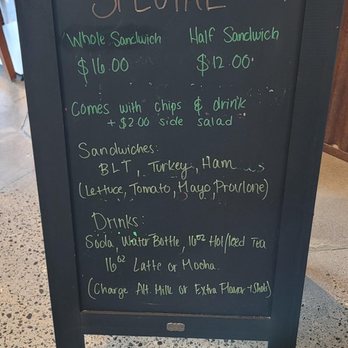 SPECIAL
Whole Sandwich Half Sandwich
$16.00 $12.00
Comes with chips & drink
+ $2.00 side salad
Sandwiches:
BLT, Turkey, Ham
(Lettuce, Tomato, Mayo, Provlone)
Drinks:
Soda, Water Bottle, 16oz Hot/Iced Tea
16oz Latte or Mocha
(Charge Alt. Milk or Extra Flavor + Shots)